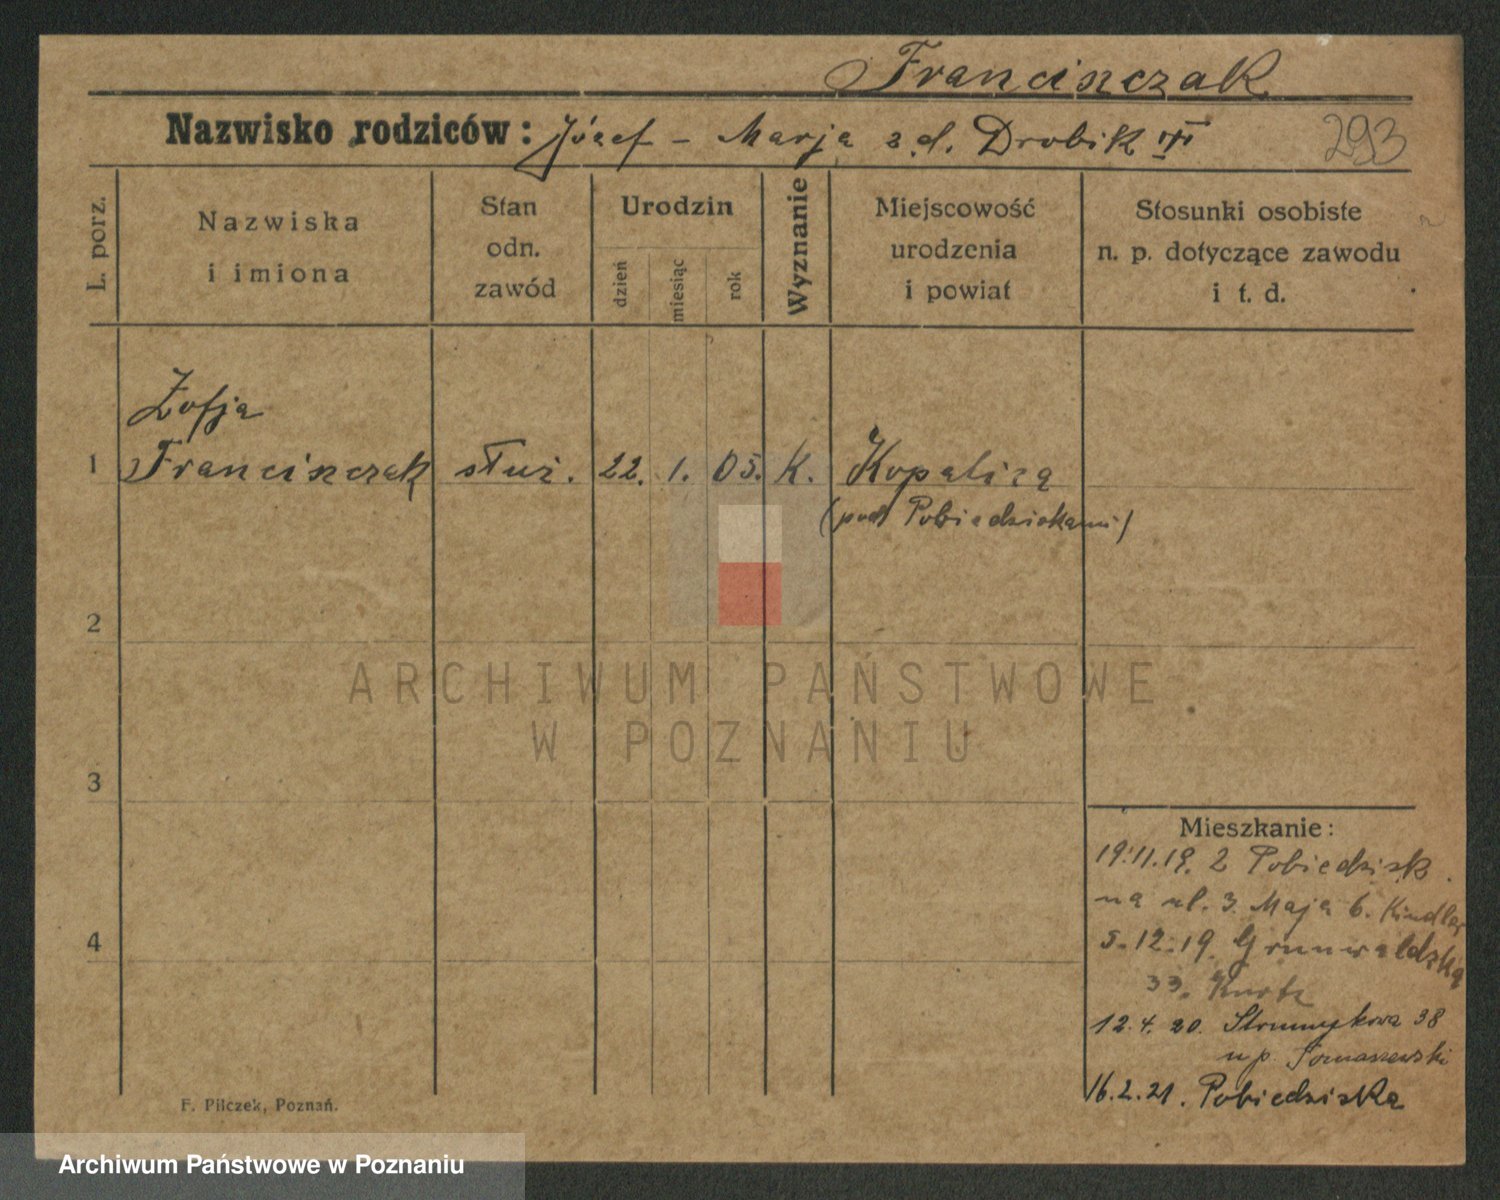 Franciszczak
Nazwisko rodziców: Józef - Marja z d. Drobik
293
L. porz.
Nazwiska
i imiona
Stan
odn.
zawód
Urodzin
dzień
miesiąc
rok
Wyznanie
Miejscowość
urodzenia
i powiat
Stosunki osobiste
n. p. dotyczące zawodu
i t. d.
Zofja
1 Franciszczak służ. 22. 1. 05. K.
(pod Pobiedziskami)
2
ARCHIWUM PAŃSTWOWE
W POZNANIU
3
4
Mieszkanie:
19.11.19. z Pobiedzisk.
na ul. 3 Maja 6. Kindler
5.12.19. Grunwaldzka
33.
12.4.20. Strumykowa 38
u p. Tomaszewski
16.2.21. Pobiedziska
F. Pilczek, Poznań.
Archiwum Państwowe w Poznaniu